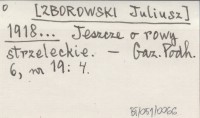 [ZBOROWSKI Juliusz]
1918... Jeszcze o rowy
strzeleckie. - Gaz. Podh.
6, nr 19: 4.